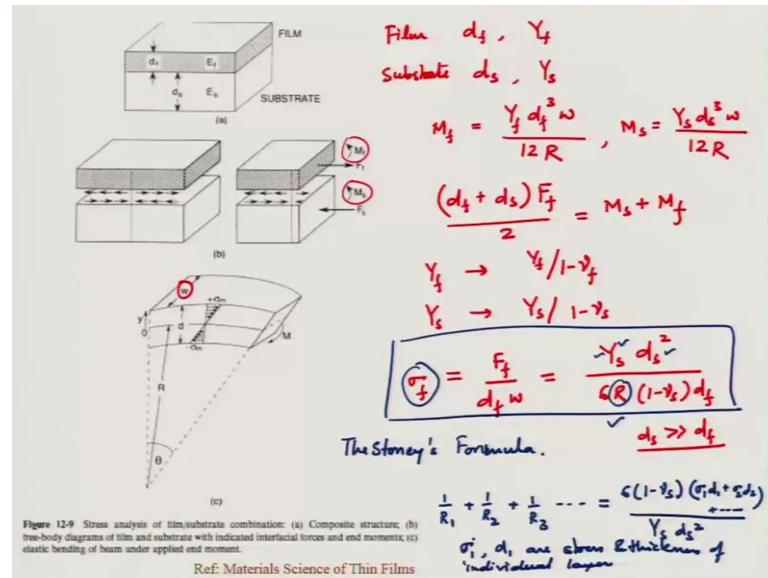 FILM
d_f E_f
d_s E_s
SUBSTRATE
(a)
M_f
F_f
M_s
F_s
(b)
w
+σ_m
y
0
d
-σ_m
M
R
θ
(c)
Figure 12-9 Stress analysis of film/substrate combination: (a) Composite structure; (b)
free-body diagrams of film and substrate with indicated interfacial forces and end moments; (c)
elastic bending of beam under applied end moment.
Ref: Materials Science of Thin Films
Film d_f , Y_f
Substrate d_s , Y_s
M_f = Y_f d_f^3 w / 12 R , M_s = Y_s d_s^3 w / 12 R
(d_f + d_s) F_f / 2 = M_s + M_f
Y_f → Y_f / 1-ν_f
Y_s → Y_s / 1-ν_s
σ_f = F_f / d_f w = Y_s d_s^2 / 6R (1-ν_s) d_f
d_s >> d_f
The Stoney's Formula.
1/R_1 + 1/R_2 + 1/R_3 ---- = 6(1-ν_s) (σ_1 d_1 + σ_2 d_2 + ----) / Y_s d_s^2
σ_i, d_i are stress & thickness of
individual layer